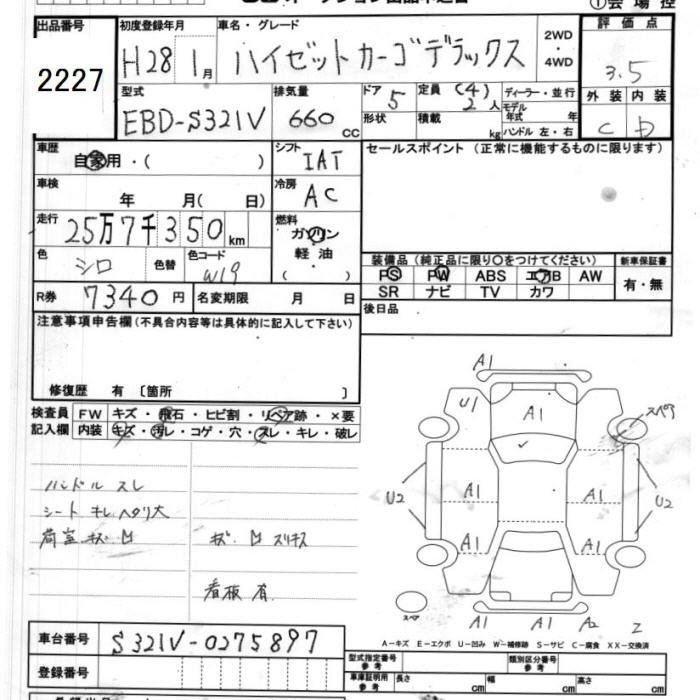 出品番号 初度登録年月 車名・グレード 2WD・4WD 評価点
2227 H28 1月 ハイゼットカーゴデラックス 3.5
型式 排気量 ドア 定員 ディーラー・並行 外装 内装
EBD-S321V 660cc 5 (4) 2人 モデル年式 年 C D
形状 積載 kg ハンドル 左・右
車歴 シフト セールスポイント (正常に機能するものに限ります)
自家用・( ) IAT
車検 冷房
年 月( 日) AC
走行 25万7千350km 燃料
ガソリン
色 シロ 色替 色コード W19 軽油
( )
装備品 (純正品に限り○をつけてください) 新車保証書
PS PW ABS エアB AW 有・無
SR ナビ TV カワ
R券 7340円 名変期限 月 日 後日品
注意事項申告欄(不具合内容等は具体的に記入して下さい)
修復歴 有 〔箇所 〕
検査員 FW キズ・飛石・ヒビ割・リペア跡・×要
記入欄 内装 キズ・汚レ・コゲ・穴・スレ・キレ・破レ
ハンドル スレ
シート キレ ヘタリ大
荷室 キズ・凹 キズ・凹 スリキズ
看板 有
A1
U1 A1 スペア
U2 A1 A1 U2
A1 A1
スペア A1 A1 A2 2
A-キズ E-エクボ U-凹み W-補修跡 S-サビ C-腐食 XX-交換済
車台番号 S321V-0275897
登録番号
型式指定番号 参考 類別区分番号 参考
車庫証明用 参考 長さ cm 幅 cm 高さ cm